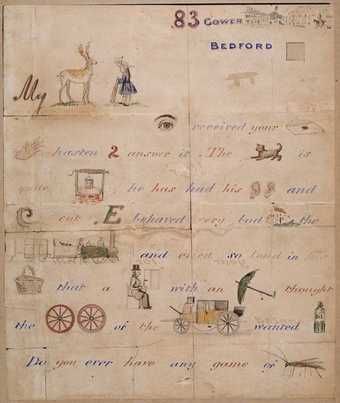 83 GOWER
BEDFORD
My
received your
hasten 2 answer it. The is
quite he has had his and
cut. E behaved very bad the
and cried so loud in
that a with an thought
the of the wanted
Do you ever have any game of